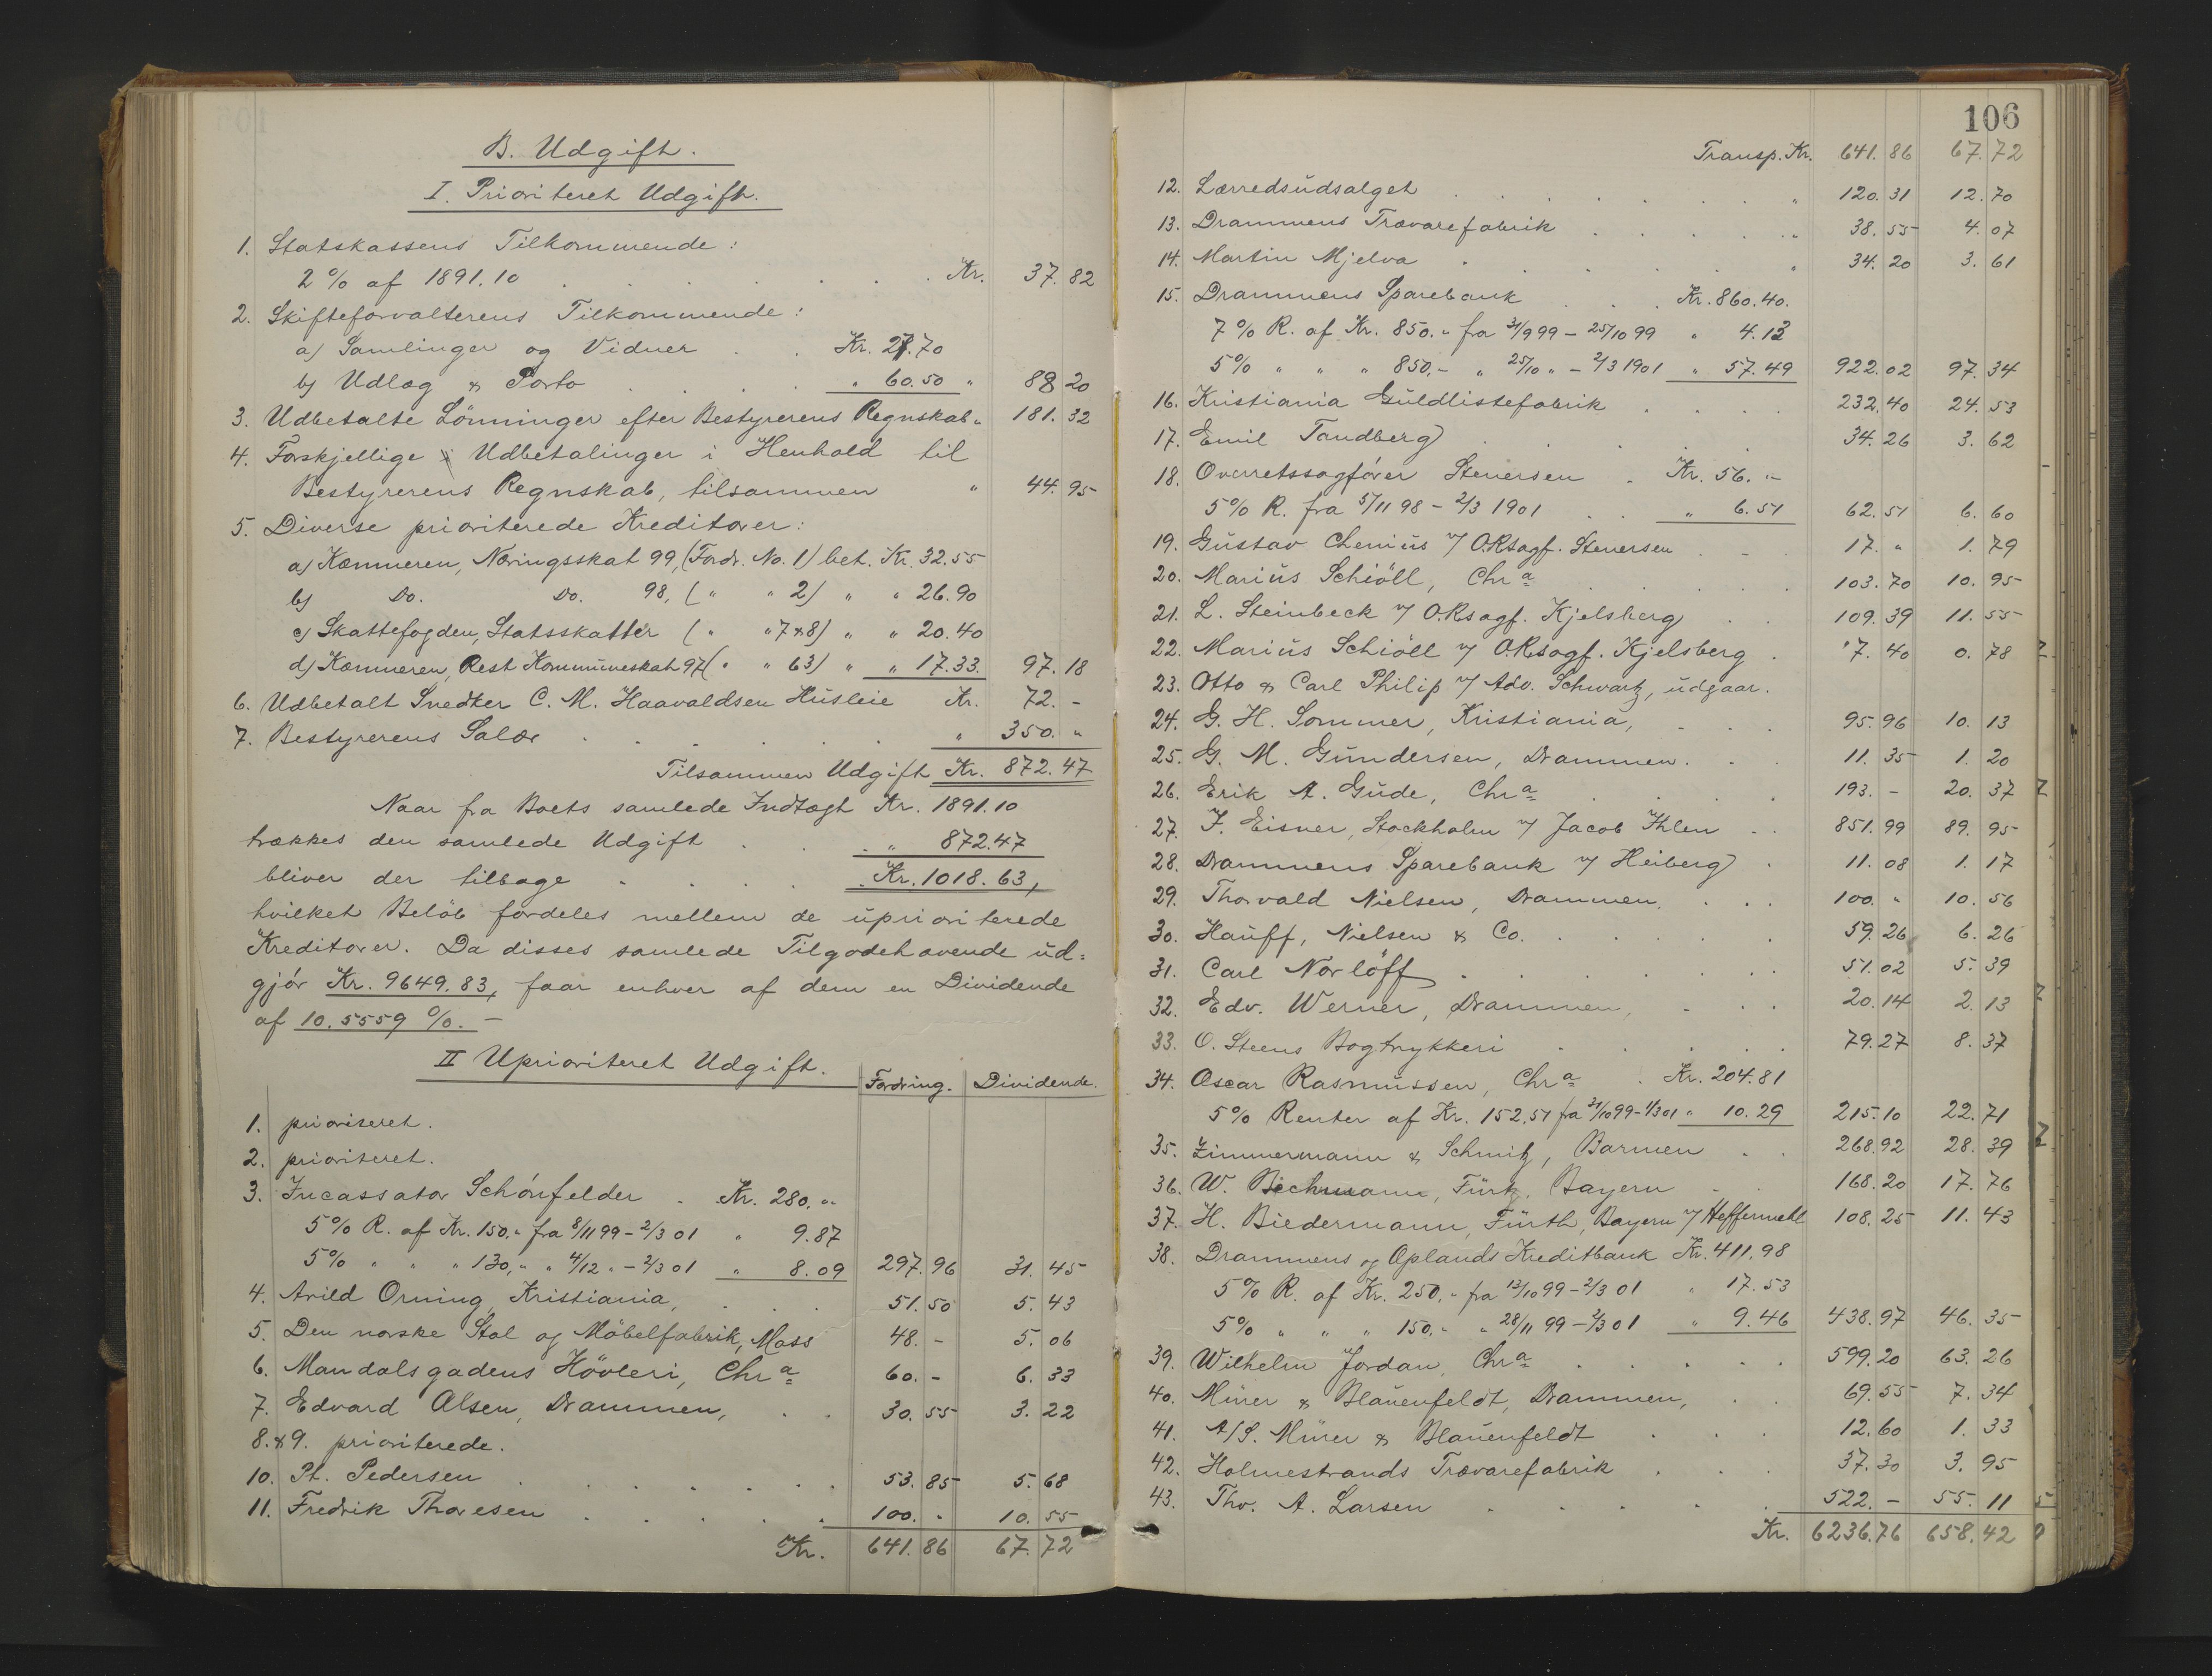 B. Udgift.
I. Prioriteret Udgift.
1. Statskassens Tilkommende:
2 % af 1891.10 . . . . . . . Kr. 37.82
2. Skifteforvalterens Tilkommende:
a) Samlinger og Vidner . . Kr. 27.70
b) Udlæg & Porto . . . . " 60.50 " 88 20
3. Udbetalte Lönninger efter Bestyrerens Regnskab " 181. 32
4. Forskjellige Udbetalinger i Henhold til
Bestyrerens Regnskab, tilsammen " 44. 95
5. Diverse prioriterede Kreditorer:
a) Kæmneren, Næringsskat 99, (Fordr. No. 1) bet. Kr. 32.55
b) Do. Do. 98, ( " " 2) " " 26.90
c) Skattefogden, Statsskatter ( " " 7&8) " " 20.40
d) Kæmneren, Rest Kommuneskat 97 ( " " 63) " " 17.33. 97. 18
6. Udbetalt Snedker C. M. Haavaldsen Husleie Kr. 72. -
7. Bestyrerens Salær . . . . . " 350. "
Tilsammen Udgift Kr. 872.47
Naar fra Boets samlede Indtægt Kr. 1891.10
trækkes den samlede Udgift . . . " 872.47
bliver der tilbage . . . . Kr. 1018.63,
hvilket Belöb fordeles mellem de uprioriterede
Kreditorer. Da disses samlede Tilgodehavende ud=
gjör Kr. 9649.83, faar enhver af dem en Dividende
af 10.5559 %. -
II Uprioriteret Udgift.
Fordring. Dividende.
1. prioriteret.
2. prioriteret.
3. Incassator Schönfelder . Kr. 280. "
5 % R. af Kr. 150. " fra 8/11 99 - 2/3 01 " 9.87
5 % " " " 130, " " 4/12 " - 2/3 01 " 8.09 297. 96 31. 45
4. Arild Orning, Kristiania, . . . 51. 50 5. 43
5. Den norske Stol og Möbelfabrik, Moss 48. - 5. 06
6. Mandalsgadens Hövleri, Chra 60. - 6. 33
7. Edvard Olsen, Drammen, . . 30. 55 3. 22
8. & 9. prioriterede.
10. Pt. Pedersen . . . . . . 53. 85 5. 68
11. Fredrik Thoresen . . . . . 100. " 10. 55
Kr. 641. 86 67. 72
106
Transp. Kr. 641. 86 67. 72
12. Lærredsudsalget . . . . . . . " 120. 31 12. 70
13. Drammens Trævarefabrik . . . . . " 38. 55 4. 07
14. Martin Mjelva . . . . . . " 34. 20 3. 61
15. Drammens Sparebank . . . Kr. 860.40.
7 % R. af Kr. 850. " fra 31/9 99 - 25/10 99 " 4.13
5 % " " " 850. - " 25/10 " - 2/3 1901 " 57.49 922. 02 97. 34
16. Kristiania Guldlistefabrik . . . . 232. 40 24. 53
17. Emil Tandberg . . . . . 34. 26 3. 62
18. Overretssagförer Stenersen . Kr. 56. "-
5 % R. fra 5/11 98 - 2/3 1901 . . " 6.51 62. 51 6. 60
19. Gustav Chenius v/ O.Rsagf. Stenersen . . . 17. " 1. 79
20. Marius Schiöll, Chra . . . . . 103. 70 10. 95
21. L. Steinbeck v/ O.Rsagf. Kjelsberg . . 109. 39 11. 55
22. Marius Schiöll v/ O.Rsagf. Kjelsberg . 7. 40 0. 78
23. Otto & Carl Philip v/ Adv. Schwartz, udgaar.
24. G. H. Sommer, Kristiania, . . . 95. 96 10. 13
25. G. M. Gundersen, Drammen. . . 11. 35 1. 20
26. Erik A. Gude, Chra . . . . . 193. - 20. 37
27. J. Eisner, Stockholm v/ Jacob Ihlen . . 851. 99 89. 95
28. Drammens Sparebank v/ Heiberg . 11. 08 1. 17
29. Thorvald Nielsen, Drammen, . . . 100. " 10. 56
30. Hauff, Nielsen & Co. . . . . . 59. 26 6. 26
31. Carl Norlöff . . . . . . . 51. 02 5. 39
32. Edv. Werner, Drammen, . . . 20. 14 2. 13
33. O. Steens Bogtrykkeri . . . . . 79. 27 8. 37
34. Oscar Rasmussen, Chra . Kr. 204.81
5 % Renter af Kr. 152,51 fra 21/10 99 - 1/3 01 " 10.29 215. 10 22. 71
35. Zimmermann & Schmitz, Barmen . . 268. 92 28. 39
36. W. Bechmann, Fürth, Bayern . . 168. 20 17. 76
37. H. Biedermann, Fürth, Bayern v/ Heffermehl 108. 25 11. 43
38. Drammens og Oplands Kreditbank Kr. 411.98
5 % R. af Kr. 250. " fra 13/10 99 - 2/3 01 " 17.53
5 % " " " 150. " " 28/11 99 - 2/3 01 " 9.46 438. 97 46. 35
39. Wilhelm Jordan, Chra . . . . . 599. 20 63. 26
40. Mürer & Blauenfeldt, Drammen, . . 69. 55 7. 34
41. A/S. Mürer & Blauenfeldt . . . 12. 60 1. 33
42. Holmestrands Trævarefabrik . . . 37. 30 3. 95
43. Thv. A. Larsen . . . . . . 522. - 55. 11
Kr. 6236. 76 658. 42